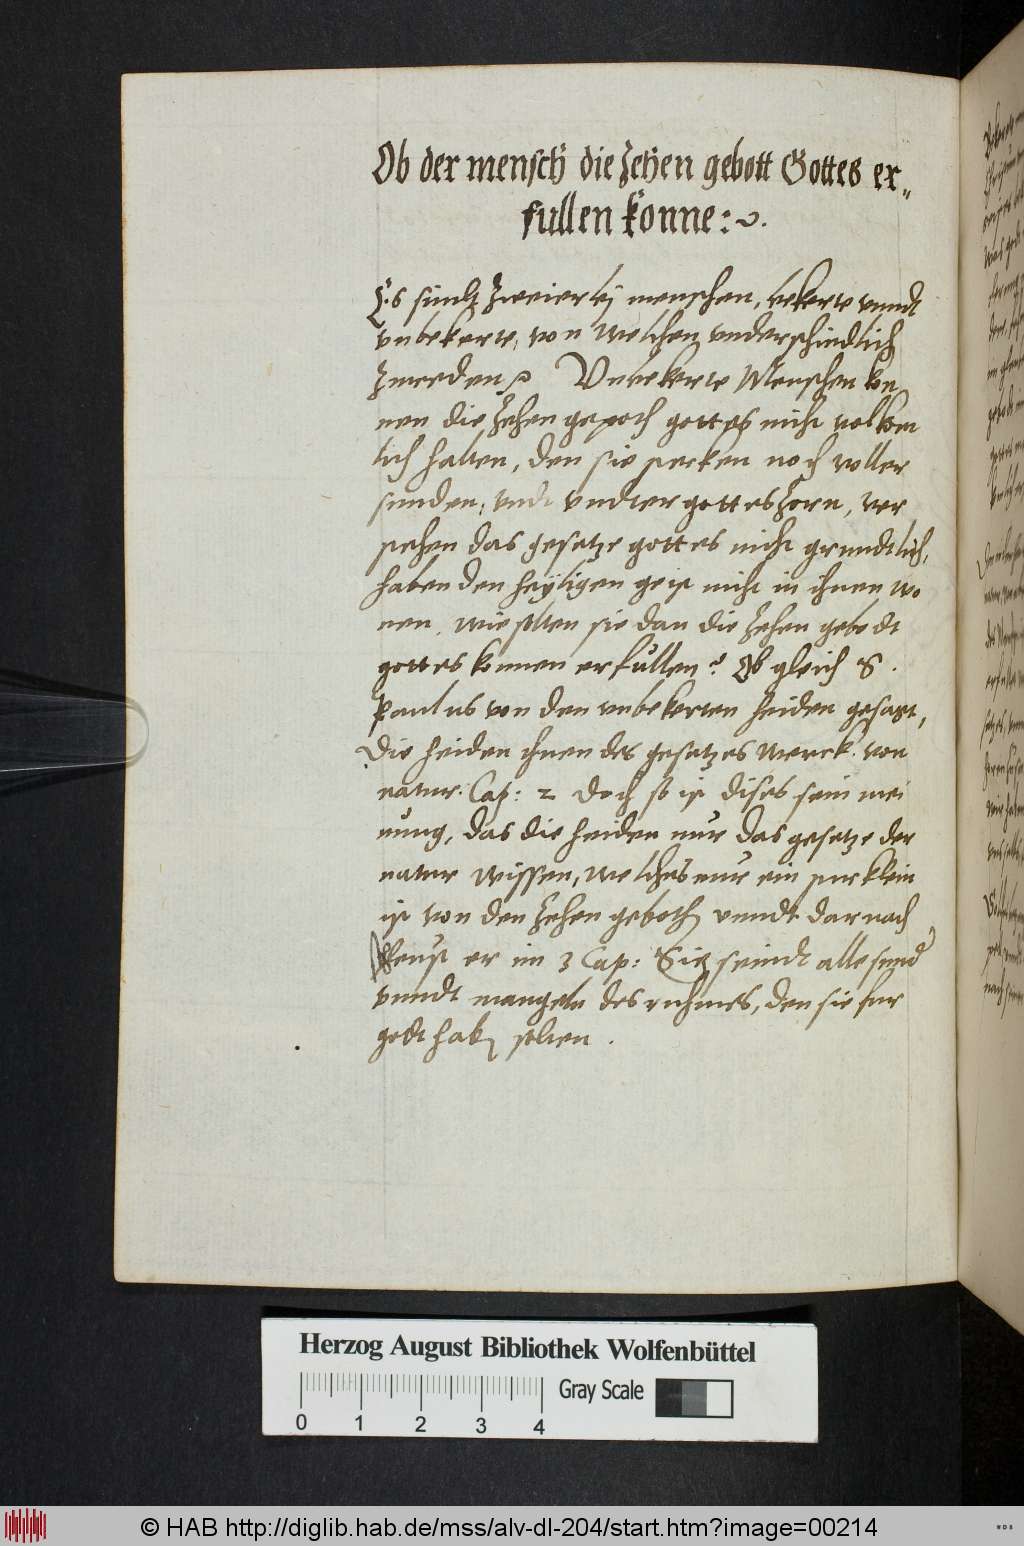 Ob der mensch die Zehen gebott Gottes er„
fullen konne:
Es sindt Zweierlej menschen, bekerte vnndt
vnbekerte, von welchen vnderschiedlich
Zureden. Vnbekerte Menschen kon
nen die Zehen gepoth gottes nicht volkom
lich halten, den sie stecken noch voller
sunden, vndt vndter gottes Zorn, ver
stehen das gesetze gottes nicht grundtlich,
haben den heyligen geist nicht in ihnen wo
nen, wie solten sie dan die Zehen gebodt
gottes konnen erfullen? Ob gleich S.
Paulus von den vnbekerten heiden gesagt,
Die heiden thuen des gesetzes werck von
natur. Cap: 2 Doch so ist dises sein mei
nung, das die heiden nur das gesetze der
natur wissen, welches nur ein stuck klein
ist von den Zehen geboth, vnndt darnach
er im 3 Cap: Sie seindt alle sund
vnndt mangeln des ruhmes, den sie fur
godt haben solten.
Herzog August Bibliothek Wolfenbüttel
Gray Scale
0 1 2 3 4
© HAB http://diglib.hab.de/mss/alv-dl-204/start.htm?image=00214